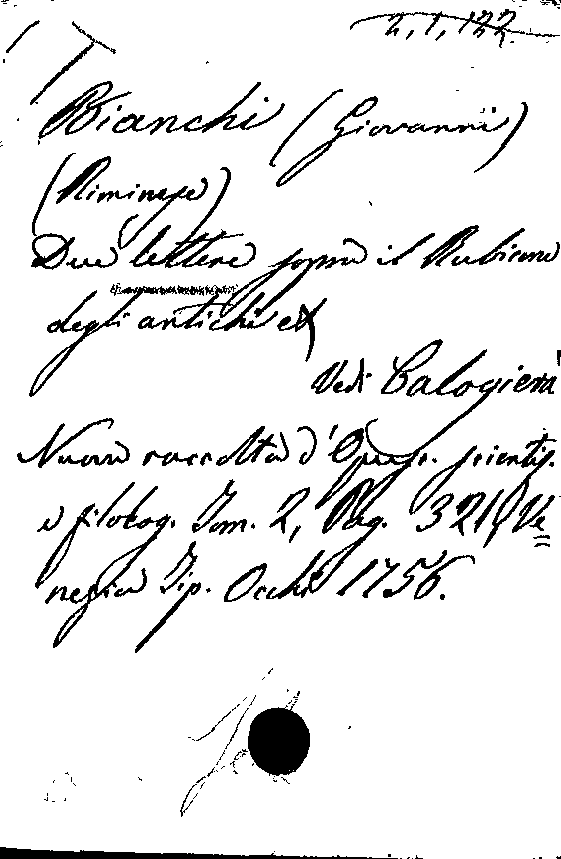 2, 1, 122
Bianchi (Giovanni)
(Riminese)
Due lettere sopra il Rubicone
degli antichi
Vedi Calogierà
Nuova raccolta d'Opusc. scientif.
e filolog. Tom. 2, Pag. 321, Ve
nezia Tip. Occhi 1756.